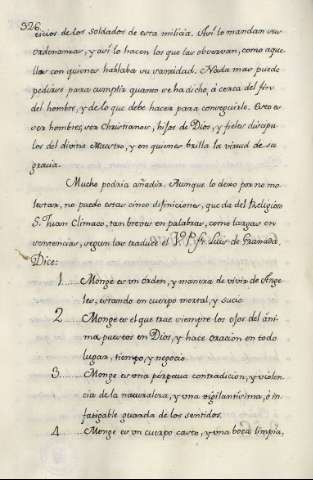 326.
cicios de los soldados de esta milicia. Así lo mandan sus
ordenanzas, y así lo hacen los que las observan, como aque
llos con quienes hablaba su santidad. Nada mas puede
pedirse para cumplir quanto se ha dicho, á cerca del fin
del hombre, y de lo que debe hacer para conseguirlo. Esto es
ser hombres, ser Christianos, hijos de Dios, y fieles discipu
los del divino Maestro, y en quienes brilla la virtud de su
gracia.
Mucho podria añadir. Aunque lo dexo por no mo
lestar, no puedo estas cinco difiniciones, que da del Religioso
S. Juan Climaco, tan breves en palabras, como largas en
sentencias, segun las traduce el V. P. Fr. Luis de Granada,
Dice:
1..... Monge es un órden, y manera de vivir de Ange
les, estando en cuerpo mortal, y sucio.
2..... Monge es el que trae siempre los ojos del áni
ma puestos en Dios, y hace oracion en todo
lugar, tiempo, y negocio.
3..... Monge es una perpetua contradicion, y violen
cia de la naturaleza, y una vigilantisima, é in
fatigable guarda de los sentidos.
4..... Monge es un cuerpo casto, y una boca limpia,